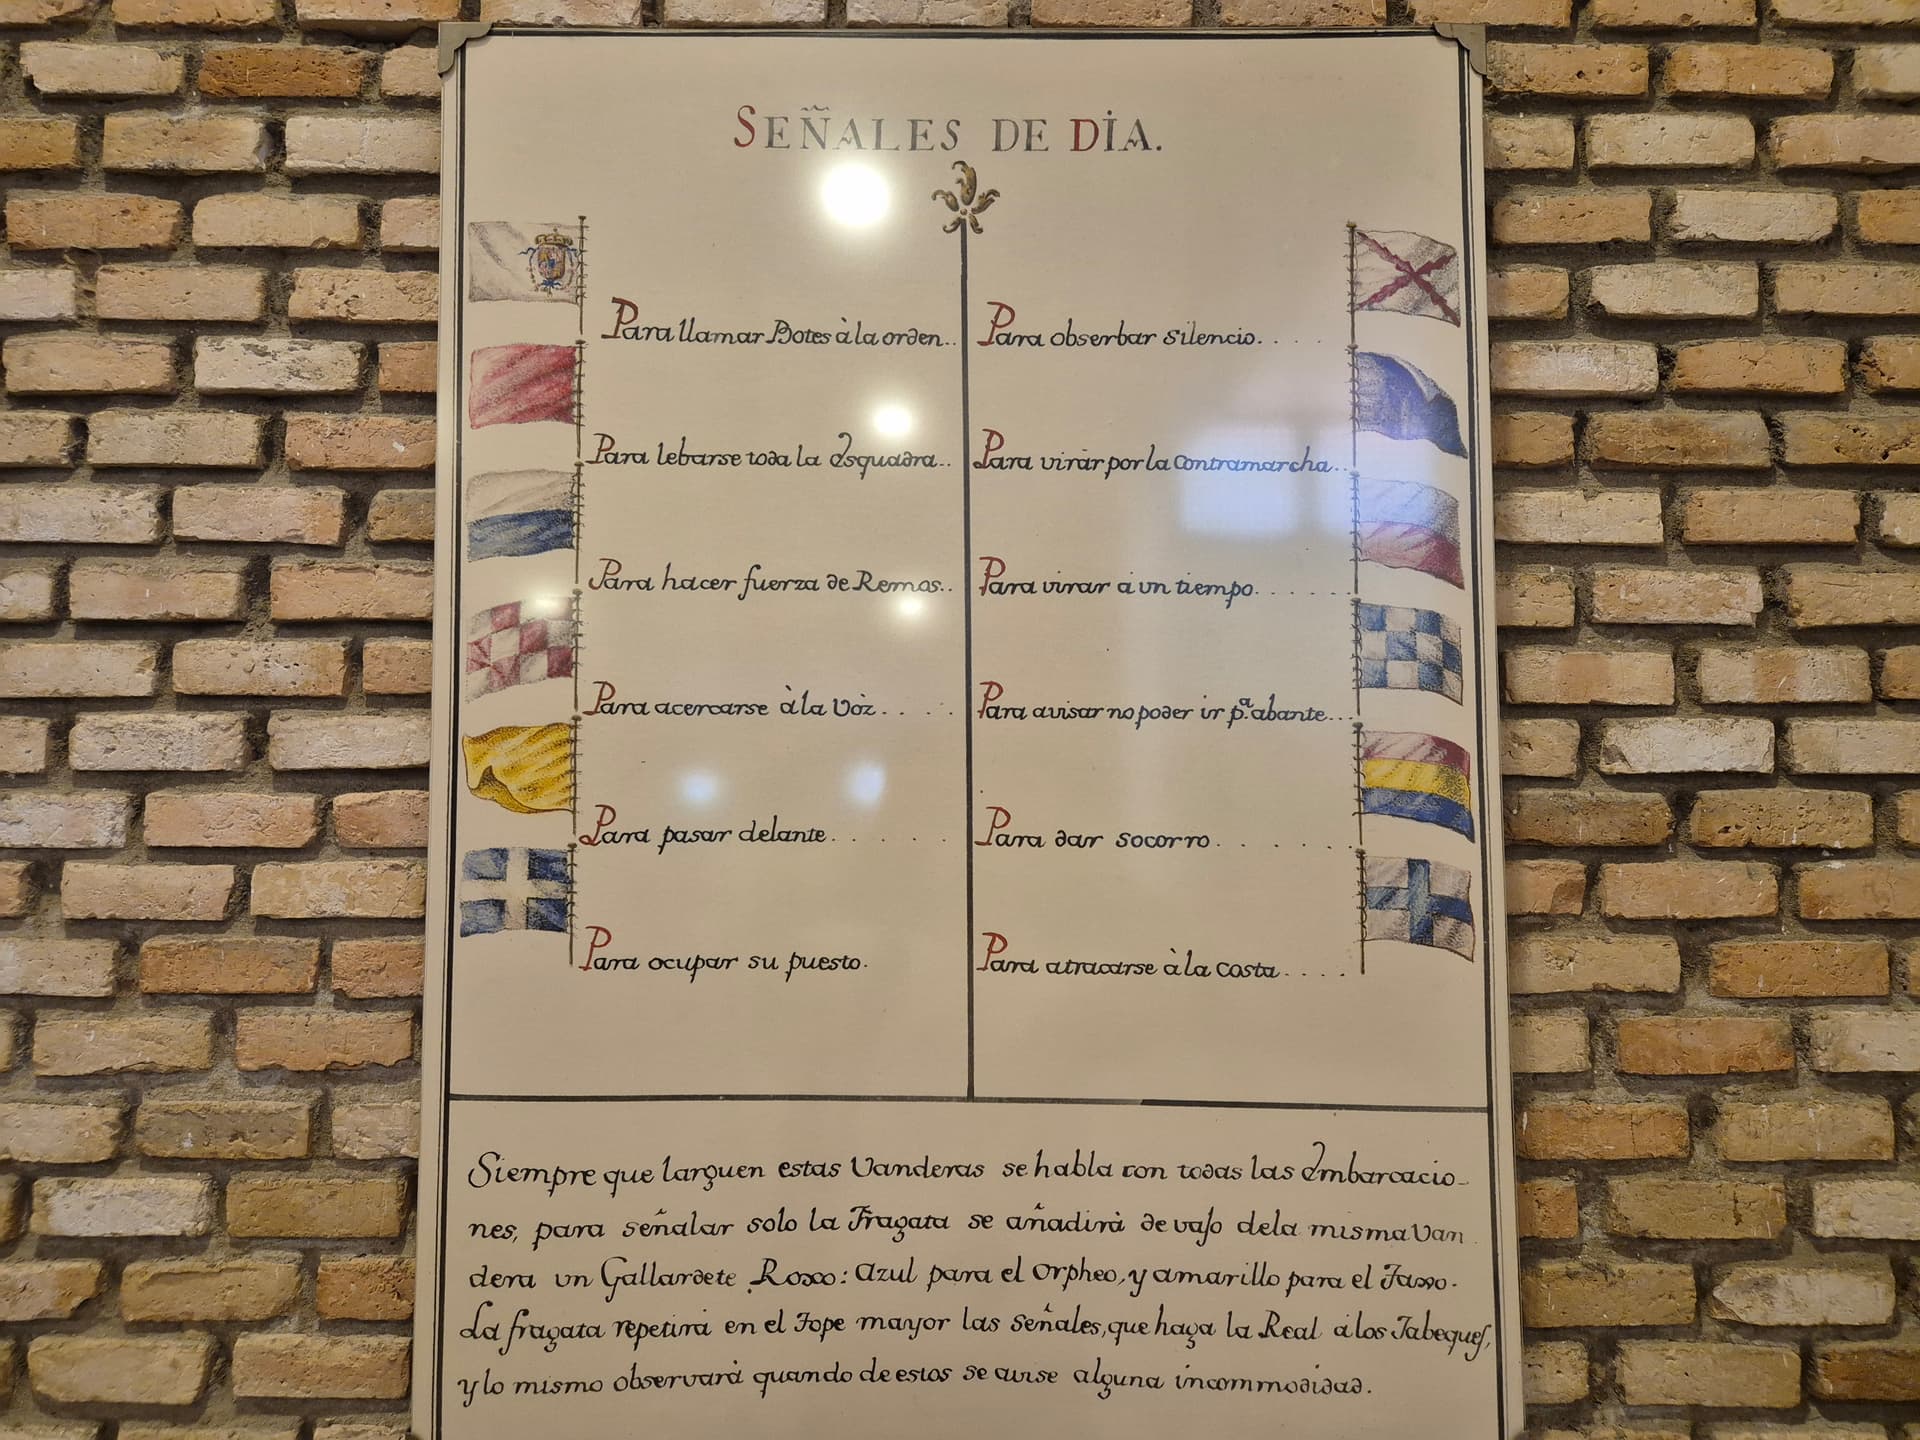 SEÑALES DE DİA.
Para llamar Botes à la orden..
Para lebarse toda la Esquadra..
Para hacer fuerza de Remos..
Para acercarse à la Vòz. . . .
Para pasar delante. . . . .
Para ocupar su puesto.
Para obserbar silencio. . . .
Para virár por la Contramarcha..
Para virar á un tiempo. . . . . .
Para avisar no poder ir p.ª abante...
Para dar socorro. . . . . .
Para atracarse à la Costa. . . .
Siempre que larguen estas Vanderas se habla con todas las Embarcacio-
nes, para señalar solo la Fragata se añadirà de vajo de la misma Van
dera un Gallardete Roxo: Azul para el Orpheo, y amarillo para el
La fragata repetirá en el Tope mayor las Señales, que haga la Real á los Jabeques,
y lo mismo observarà quando de estos se avise alguna incommodidad.